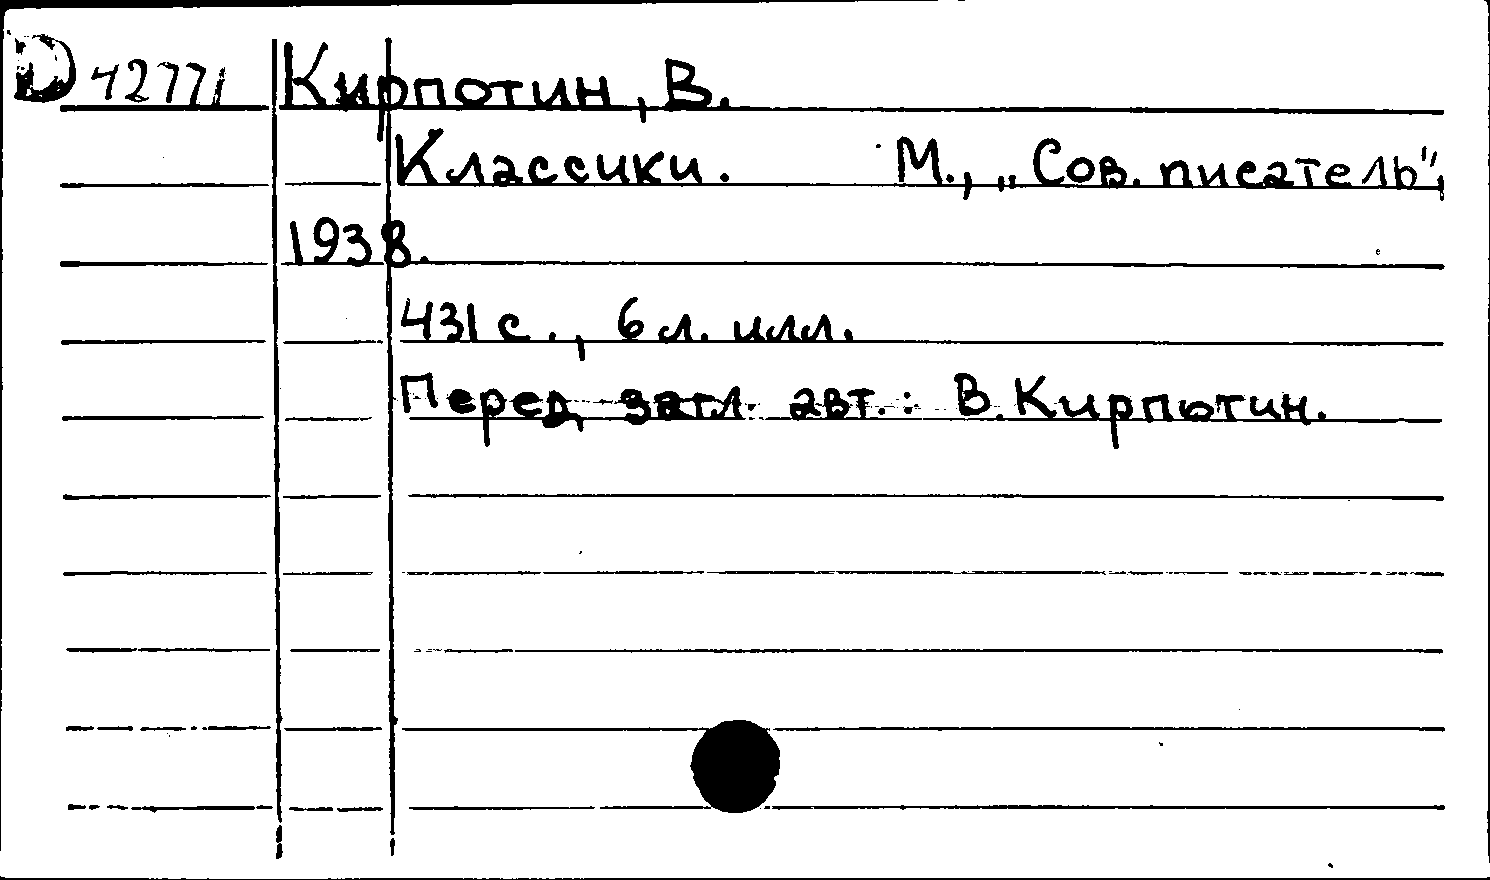 D 42771 Кирпотин, В.
Классики. М., „Сов. писатель",
1938.
431 с., 6 л. илл.
Перед загл. авт.: В. Кирпотин.